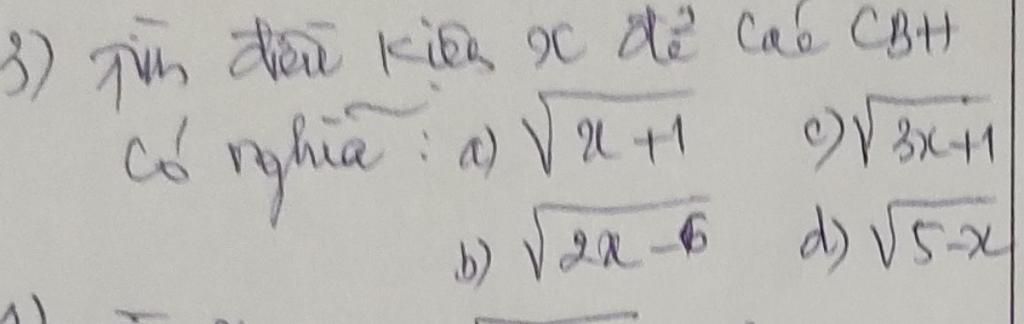 3) Tìm điều kiện x để các CBH
có nghĩa : a) √x+1 c) √3x+1
b) √2x-6 d) √5-x